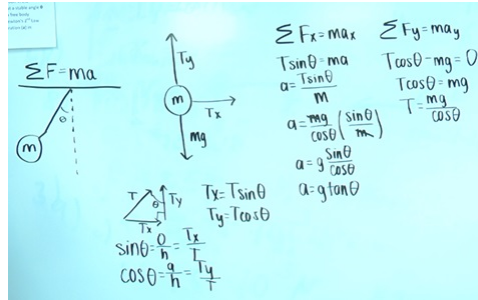 ΣF=ma
θ
m
Ty
m
Tx
mg
T
θ
Ty
Tx
Tx=Tsinθ
Ty=Tcosθ
sinθ=O/h=Tx/T
cosθ=a/h=Ty/T
ΣFx=max
Tsinθ=ma
a=Tsinθ/m
a=mg/cosθ(sinθ/m)
a=g sinθ/cosθ
a=gtanθ
ΣFy=may
Tcosθ-mg=0
Tcosθ=mg
T=mg/cosθ